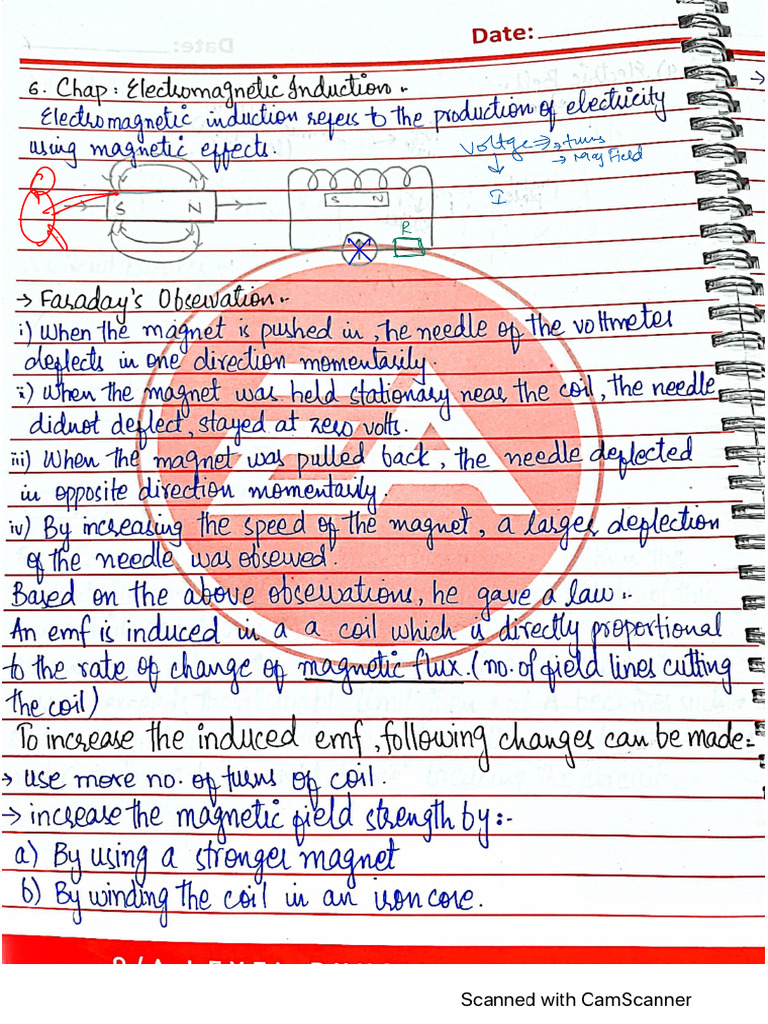 Date:
6. Chap: Electromagnetic Induction:-
Electromagnetic induction refers to the production of electricity
using magnetic effects.
Voltge ⇒ turns
→ Mag Field
↓
I
S N
S N
R
→ Faraday's Observation:-
i) When the magnet is pushed in, the needle of the voltmeter
deflects in one direction momentarily.
ii) When the magnet was held stationary near the coil, the needle
didnot deflect, stayed at zero volts.
iii) When the magnet was pulled back, the needle deflected
in opposite direction momentarily.
iv) By increasing the speed of the magnet, a larger deflection
of the needle was observed.
Based on the above observations, he gave a law:-
An emf is induced in a a coil which is directly proportional
to the rate of change of magnetic flux. (no. of field lines cutting
the coil)
To increase the induced emf, following changes can be made:-
→ use more no. of turns of coil.
→ increase the magnetic field strength by:-
a) By using a stronger magnet
b) By winding the coil in an iron core.
Scanned with CamScanner